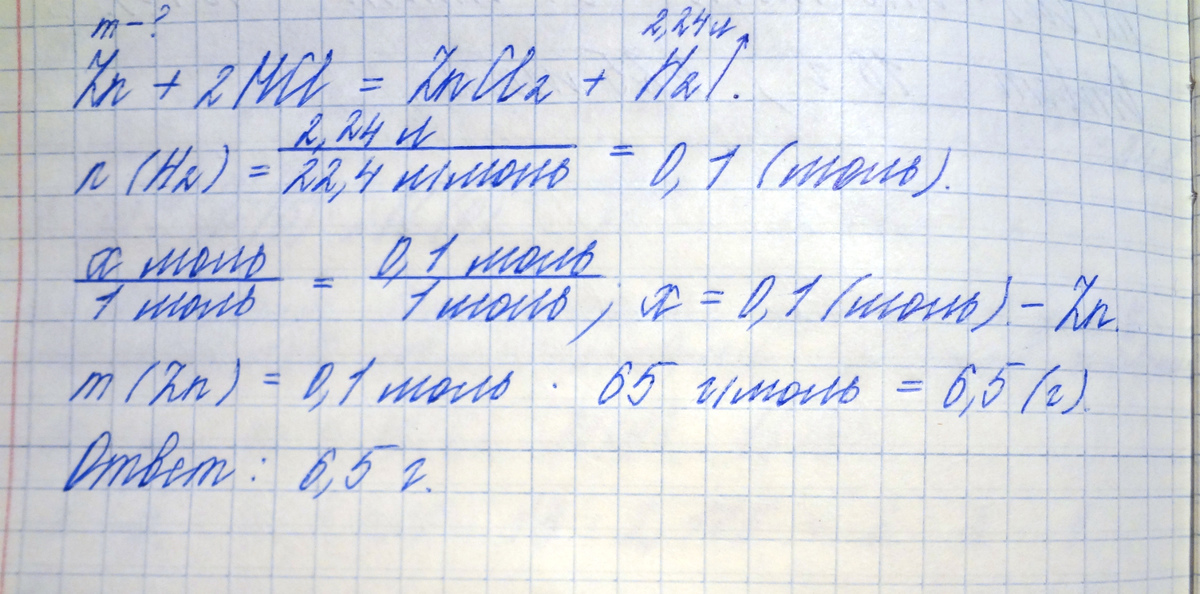 m - ?
2,24 л
Zn + 2HCl = ZnCl₂ + H₂↑.
n (H₂) = 2,24 л / 22,4 л/моль = 0,1 (моль).
x моль / 1 моль = 0,1 моль / 1 моль ; x = 0,1 (моль). - Zn.
m (Zn) = 0,1 моль · 65 г/моль = 6,5 (г).
Ответ : 6,5 г.